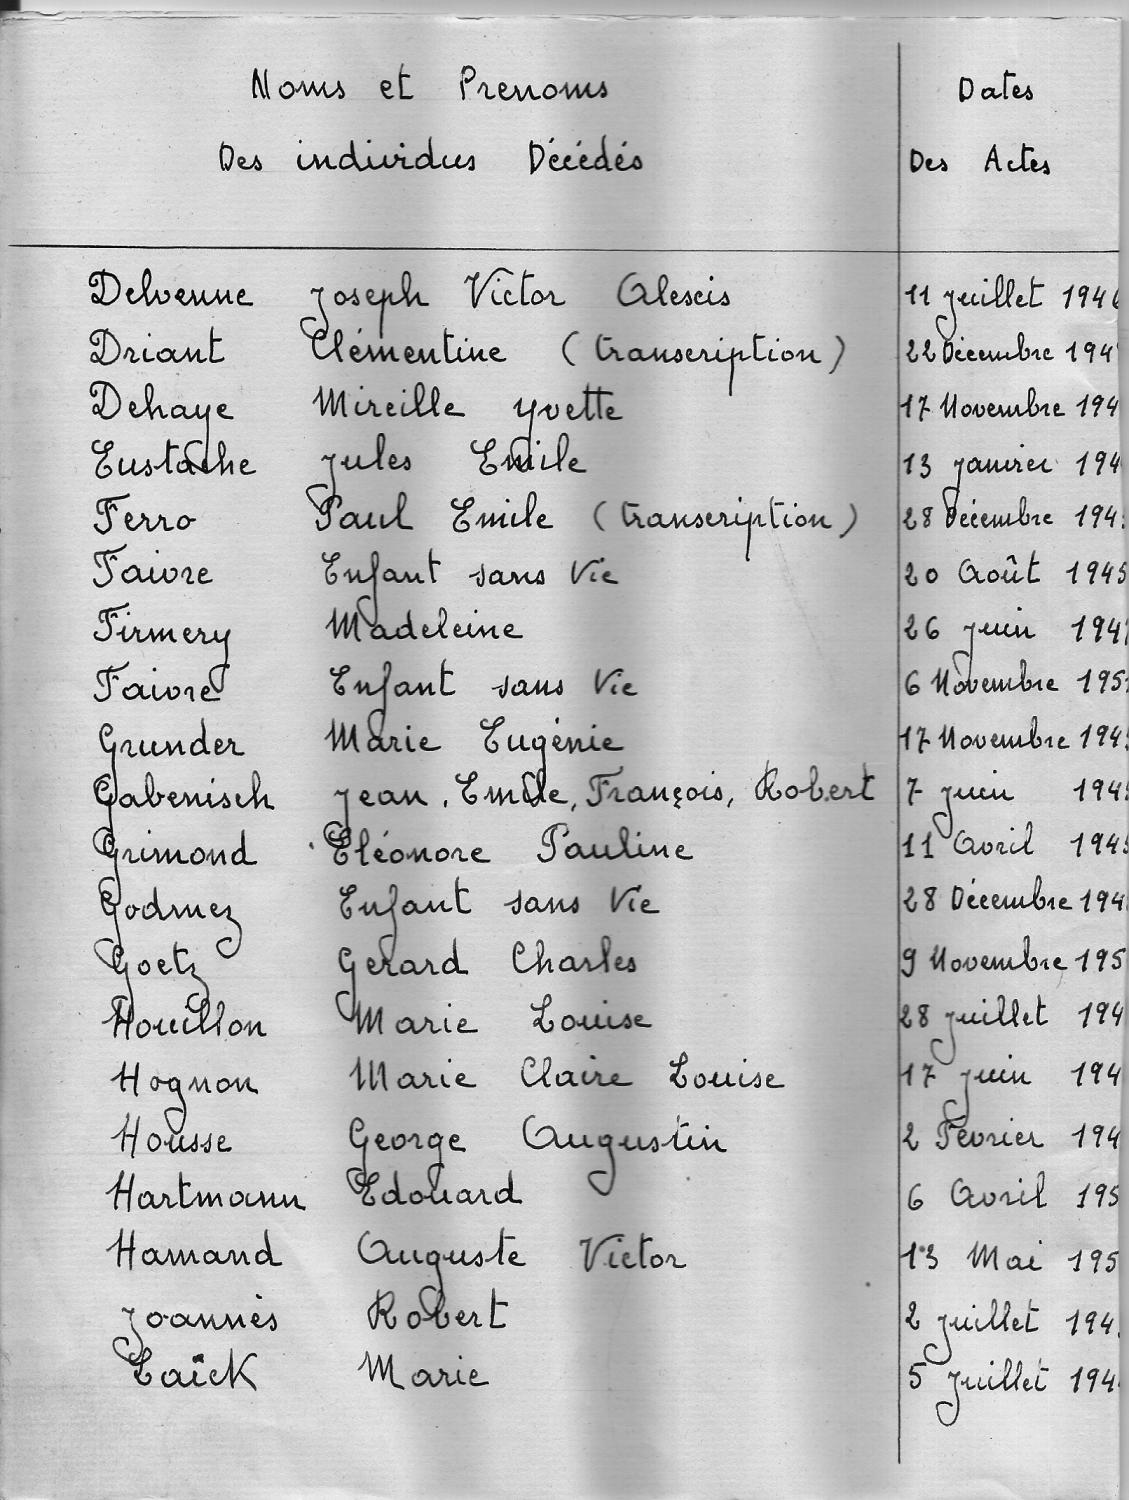 Noms et Prenoms Dates
Des individus Décédés Des Actes
Delvenne Joseph Victor Alexis 11 juillet 1946
Driant Clémentine (transcription) 22 Décembre 194
Dehaye Mireille yvette 17 Novembre 194
Eustache jules Emile 13 janvier 194
Ferro Paul Emile (transcription) 28 Décembre 194
Faivre Enfant sans Vie 20 Août 1945
Firmery Madeleine 26 juin 194
Faivre Enfant sans Vie 6 Novembre 195
Grunder Marie Eugénie 17 Novembre 194
Gabenisch jean, Emile, François, Robert 7 juin 194
Grimond Eléonore Pauline 11 Avril 194
Godmez Enfant sans Vie 28 Décembre 194
Goetz Gerard Charles 9 Novembre 195
Houillon Marie Louise 28 juillet 194
Hognon Marie Claire Louise 17 juin 194
Housse George Augustin 2 Février 194
Hartmann Edouard 6 Avril 195
Hamand Auguste Victor 13 Mai 195
Joannès Robert 2 juillet 194
Laïck Marie 5 juillet 194